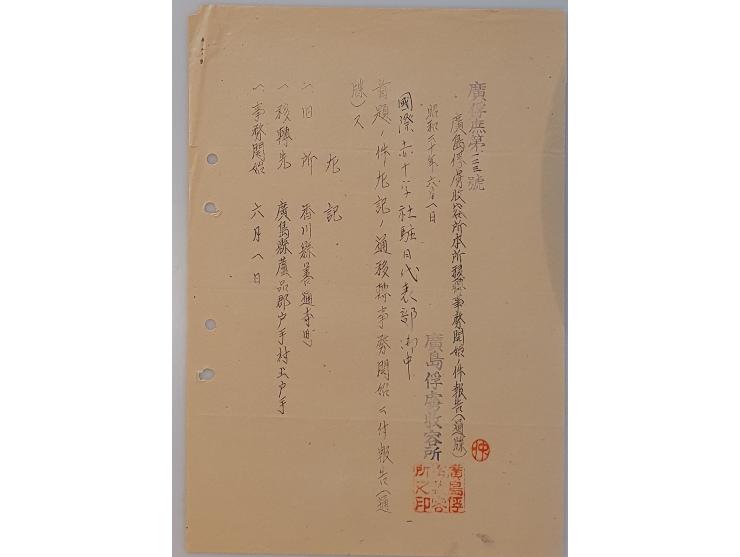 廣俘庶第一二三號
廣島俘虜收容所本所移轉事務開始ノ件報告(通牒)
昭和二十年六月八日
廣島俘虜收容所
廣島俘虜收容所之印
國際赤十字社駐日代表部御中
首題ノ件左記ノ通移轉事務開始ニ付報告(通
牒)ス
左記
一、旧所 香川縣善通寺町
一、移轉先 廣島縣蘆品郡戸手村上戸手
一、事務開始 六月八日